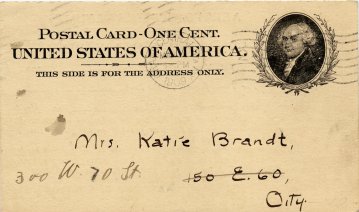 POSTAL CARD-ONE CENT.
UNITED STATES OF AMERICA.
THIS SIDE IS FOR THE ADDRESS ONLY.
Mrs. Katie Brandt,
300 W. 70 St. 150 E. 60,
City.